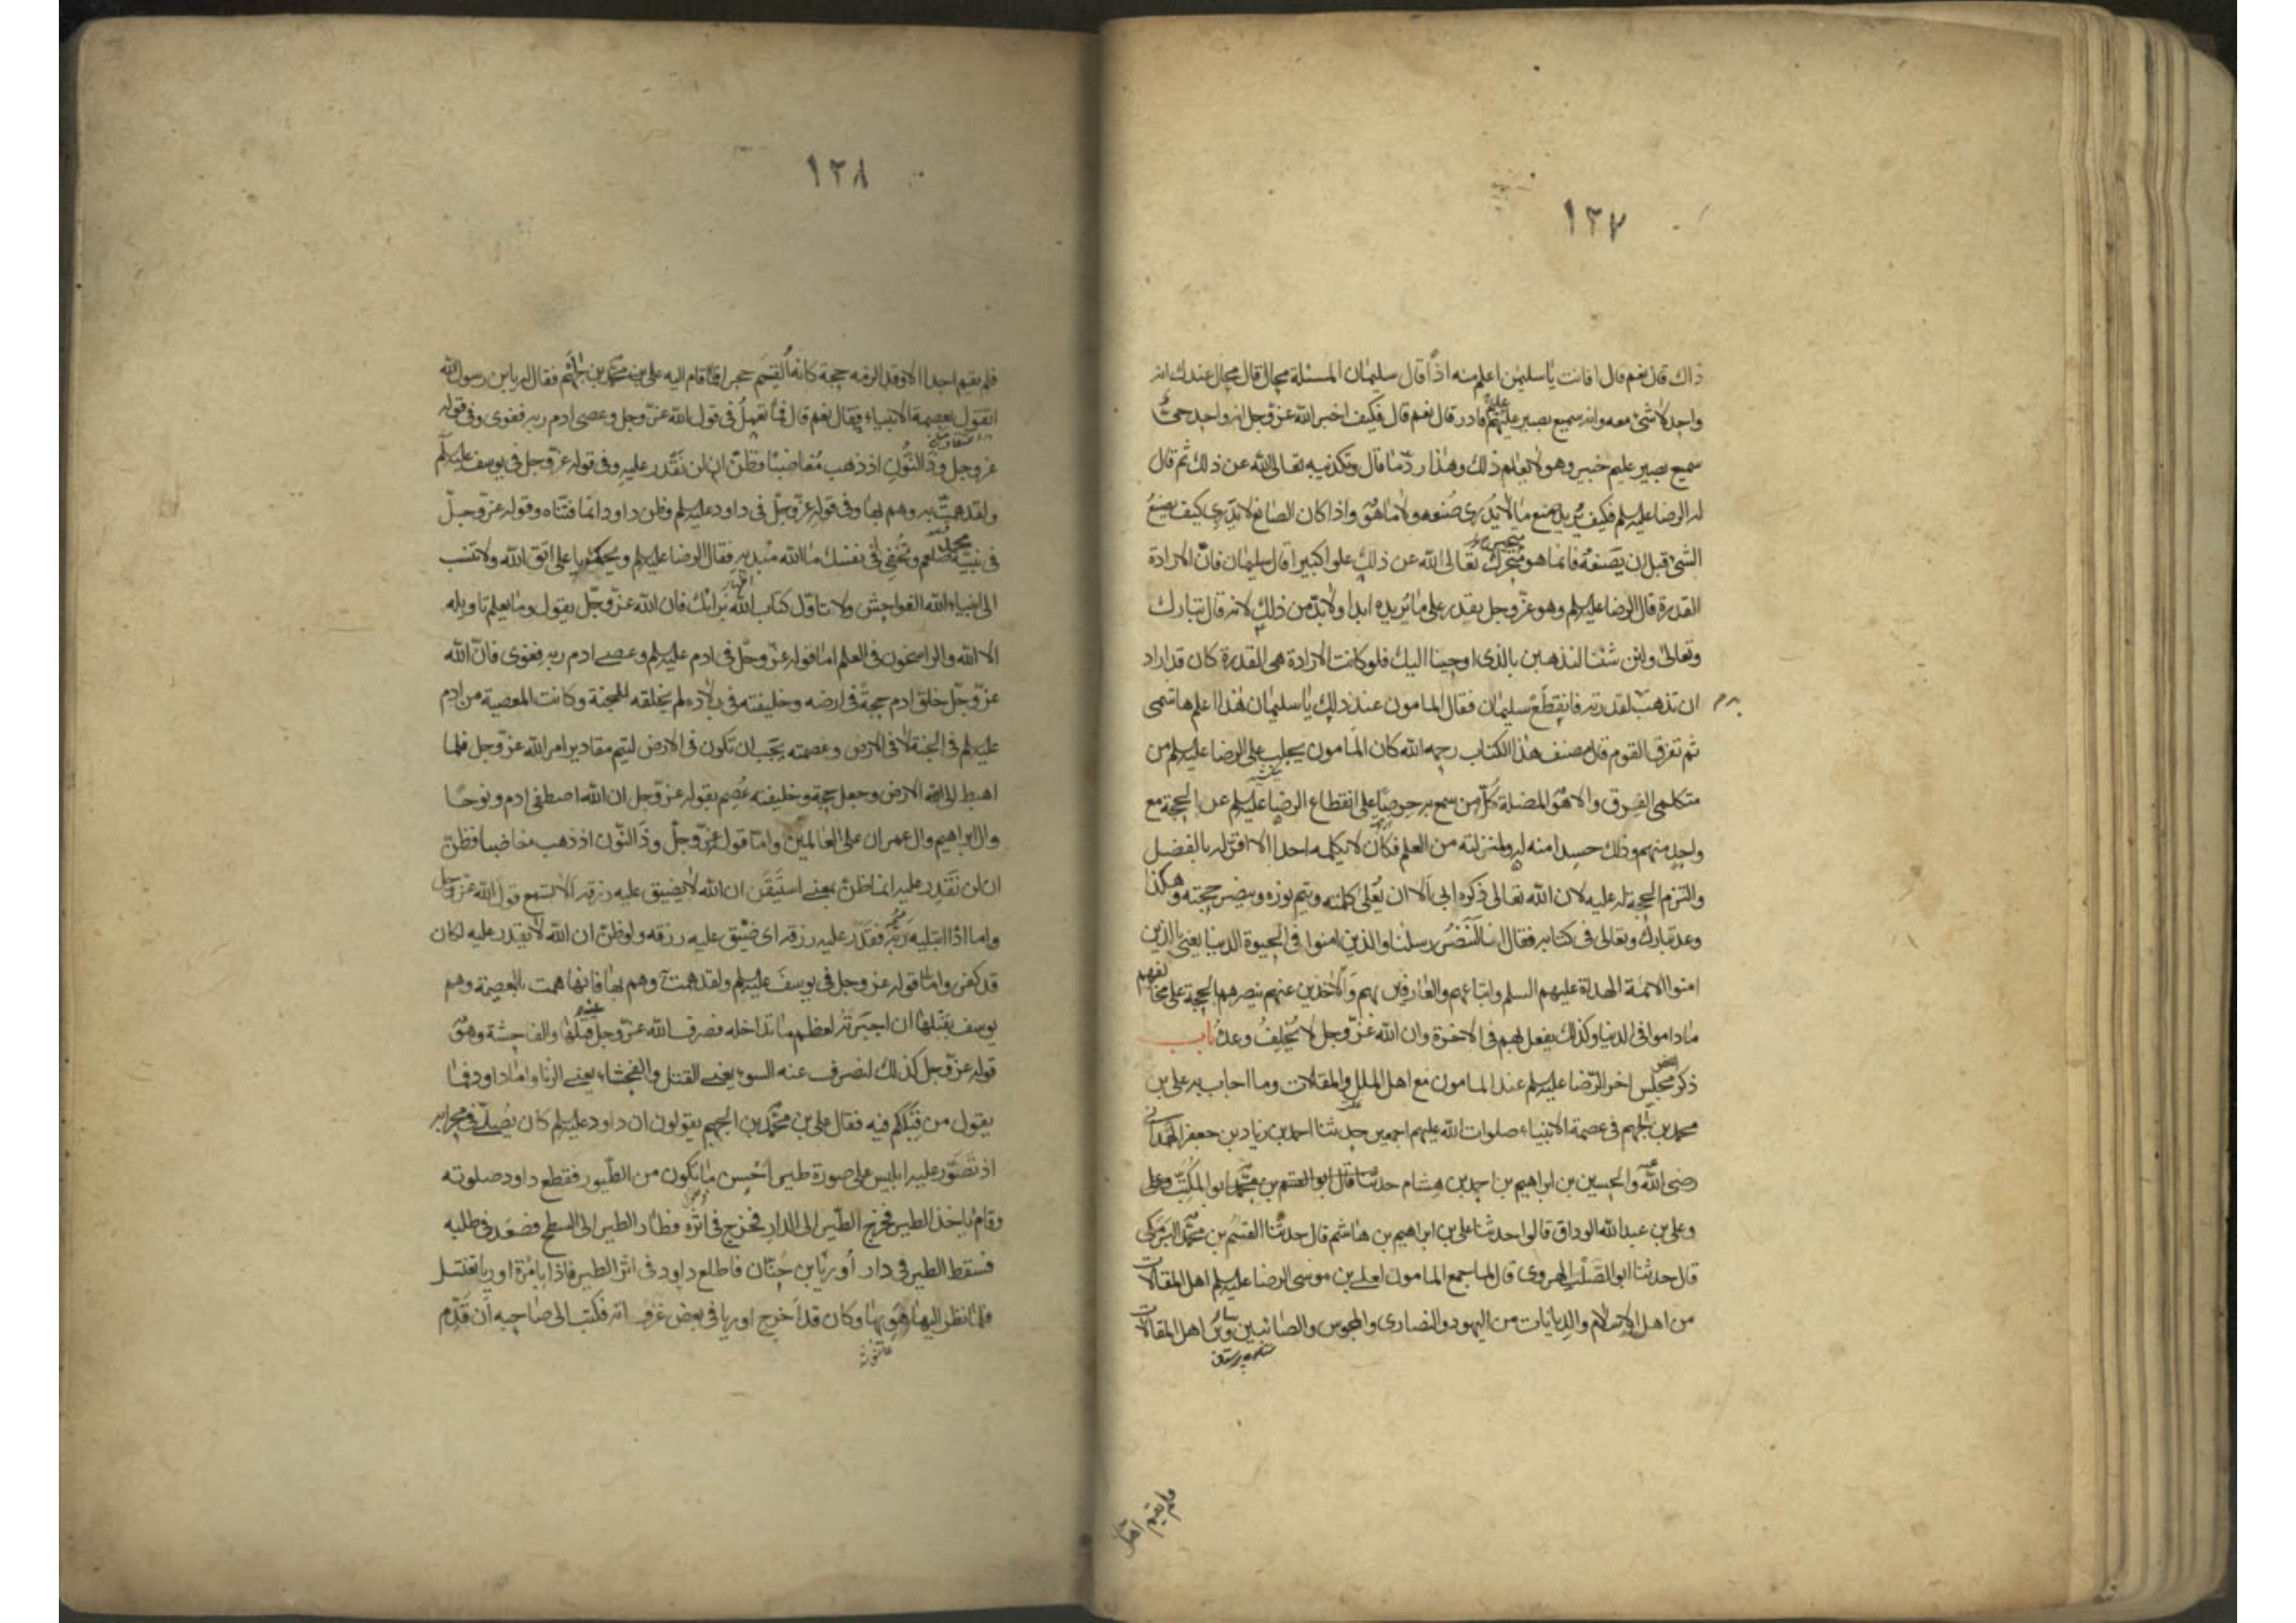 ١٢٧
ذاك قال نعم قال افانت يا سليمن اعلم منه اذا قال سليمان المسئلة محال قال محال عندك انه
واحد لا شئ معه وانه سميع بصير حكيم قادر قال نعم قال فكيف اخبر الله عز وجل انه واحد حى
سميع بصير عليم خبير وهو لا يعلم ذلك وهذا رد ما قال وتكذيبه تعالى الله عن ذلك ثم قال
له الرضا عليه السلم فكيف يريد صنع ما لا يدرى صنعه ولا ما هو واذا كان الصانع لا يدرى كيف يصنع
الشئ قبل ان يصنعه فانما هو متحير تعالى الله عن ذلك علوا كبيرا قال سليمان فان الارادة
القدرة قال الرضا عليه السلم وهو عز وجل يقدر على ما يريده ابدا ولا بد من ذلك لانه قال تبارك
وتعالى ولئن شئنا لنذهبن بالذى اوحينا اليك فلو كانت الارادة هى القدرة كان قد اراد
ان تذهب لقدرته فانقطع سليمان فقال المامون عند ذلك يا سليمان هذا اعلم هاشمى
ثم تفرق القوم قال مصنف هذا الكتاب رحمه الله كان المامون يجلب على الرضا عليه السلم من
متكلمى الفرق والاهواء المضلة كل من سمع به حرصا على انقطاع الرضا عليه السلم عن الحجة مع
واحد منهم وذلك حسدا منه له ولمنزلته من العلم فكان لا يكلمه احد الا اقر له بالفضل
والتزم الحجة له عليه لان الله تعالى ذكره ابى الا ان يعلى كلمته ويتم نوره وينصر حجته وهكذا
وعد تبارك وتعالى فى كتابه فقال انا لننصر رسلنا والذين امنوا فى الحيوة الدنيا يعنى بالذين
امنوا الائمة الهداة عليهم السلم واتباعهم والعارفين بهم والاخذين عنهم ننصرهم بالحجة على مخالفيهم
ماداموا فى الدنيا وكذلك يفعل بهم فى الاخرة وان الله عز وجل لا يخلف وعده باب
ذكر مجلس اخر للرضا عليه السلم عند المامون مع اهل الملل والمقالات وما اجاب به على بن
محمد بن الجهم فى عصمة الانبياء صلوات الله عليهم اجمعين حدثنا احمد بن زياد بن جعفر الهمدانى
رضى الله عنه والحسين بن ابراهيم بن احمد بن هشام المكتب
وعلى بن عبد الله الوراق قالوا حدثنا على بن ابراهيم بن هاشم قال حدثنا القسم بن محمد البرمكى
قال حدثنا ابو الصلت الهروى قال لما جمع المامون لعلى بن موسى الرضا عليه السلم اهل المقالات
من اهل الاسلام والديانات من اليهود والنصارى والمجوس والصابئين وسائر اهل المقالات
ستاره پرستان
فلم يقم احد
١٢٨
فلم يقم احد الا وقد الزمه حجة كانه القم حجرا فقام اليه على بن محمد بن الجهم فقال له يا بن رسول الله
اتقول بعصمة الانبياء فقال نعم قال فما تعمل فى قول الله عز وجل وعصى ادم ربه فغوى وفى قوله
عز وجل وذا النون اذ ذهب مغاضبا فظن ان لن نقدر عليه وفى قوله عز وجل فى يوسف عليه السلم
ولقد همت به وهم بها وفى قوله عز وجل فى داود عليه السلم وظن داود انما فتناه وقوله عز وجل
فى نبيه محمد صلعم وتخفى فى نفسك ما الله مبديه فقال الرضا عليه السلم ويحك يا على اتق الله ولا تنسب
الى انبياء الله الفواحش ولا تتاول كتاب الله برايك فان الله عز وجل يقول وما يعلم تاويله
الا الله والراسخون فى العلم اما قوله عز وجل فى ادم عليه السلم وعصى ادم ربه فغوى فان الله
عز وجل خلق ادم حجة فى ارضه وخليفته فى بلاده لم يخلقه للجنة وكانت المعصية من ادم
عليه السلم فى الجنة لا فى الارض وعصمته يجب ان تكون فى الارض ليتم مقادير امر الله عز وجل فلما
اهبط الى الارض وجعل حجة وخليفة عصم بقوله عز وجل ان الله اصطفى ادم ونوحا
وال ابراهيم وال عمران على العالمين واما قوله عز وجل وذا النون اذ ذهب مغاضبا فظن
ان لن نقدر عليه انما ظن بمعنى استيقن ان الله لا يضيق عليه رزقه الا تسمع قول الله عز وجل
واما اذا ابتليه ربه فقدر عليه رزقه اى ضيق عليه رزقه ولو ظن ان الله لا يقدر عليه لكان
قد كفر واما قوله عز وجل فى يوسف عليه السلم ولقد همت به وهم بها فانها همت بالمعصية وهم
يوسف بقتلها ان اجبرته لعظم ما تداخله فصرف الله عز وجل عنه قتلها والفاحشة وهو
قوله عز وجل كذلك لنصرف عنه السوء يعنى القتل والفحشاء يعنى الزنا واما داود فما
يقول من قبلكم فيه فقال على بن محمد بن الجهم يقولون ان داود عليه السلم كان يصلى فى محرابه
اذ تصور عليه ابليس على صورة طير احسن ما يكون من الطيور فقطع داود صلوته
وقام ياخذ الطير فخرج الطير الى الدار فخرج فى اثره فطار الطير الى السطح فصعد فى طلبه
فسقط الطير فى دار اوريا بن حنان فاطلع داود فى اثر الطير فاذا بامراة اوريا تغتسل
فلما نظر اليها هويها وكان قد اخرج اوريا فى بعض غزواته فكتب الى صاحبه ان قدم